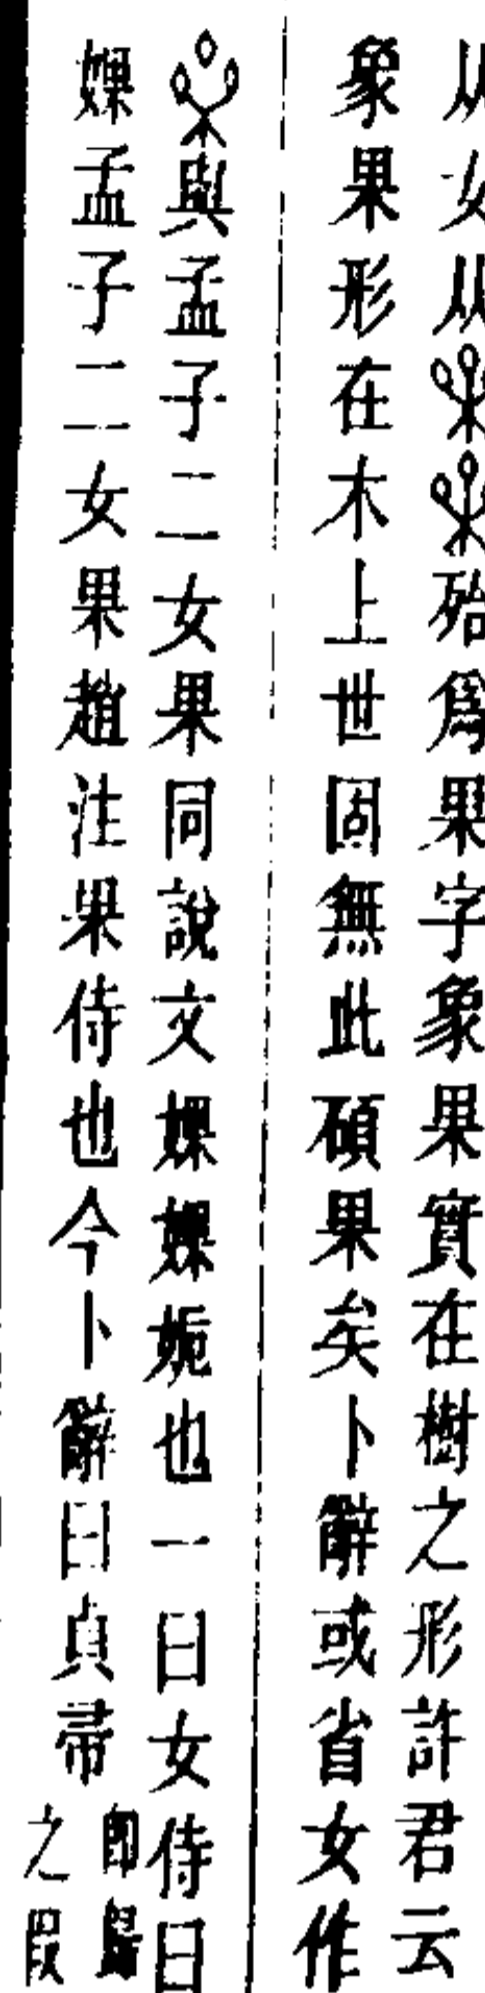 从女从殆爲果字象果實在樹之形許君云
象果形在木上世固無此碩果矣卜辭或省女作
與孟子二女果同說文婐婐妮也一曰女侍曰
婐孟子二女果趙注果侍也今卜辭曰貞帚
卽歸
之叚